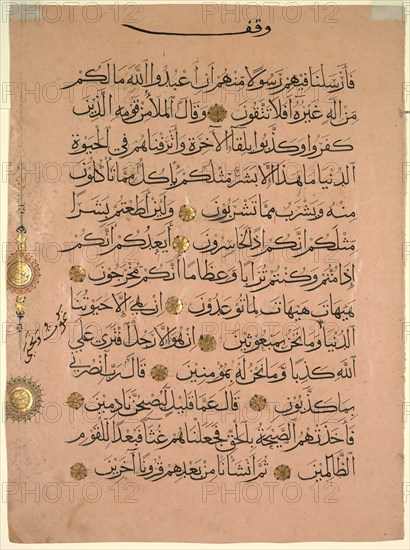 وقف
فأرسلنا فيهم رسولا منهم أن اعبدوا الله ما لكم
من إله غيره أفلا تتقون وقال الملأ من قومه الذين
كفروا وكذبوا بلقاء الآخرة وأترفناهم في الحيوة
الدنيا ما هذا إلا بشر مثلكم يأكل مما تأكلون
منه ويشرب مما تشربون ولئن أطعتم بشرا
مثلكم إنكم إذا لخاسرون أيعدكم أنكم
إذا متم وكنتم ترابا وعظاما أنكم مخرجون
هيهات هيهات لما توعدون إن هي إلا حيوتنا
الدنيا وما نحن بمبعوثين إن هو إلا رجل افترى على
الله كذبا وما نحن له بمؤمنين قال رب انصرني
بما كذبون قال عما قليل ليصبحن نادمين
فأخذتهم الصيحة بالحق فجعلناهم غثاء فبعدا للقوم
الظالمين ثم أنشأنا من بعدهم قرونا آخرين
نموت ونحيا
PHOTO 12